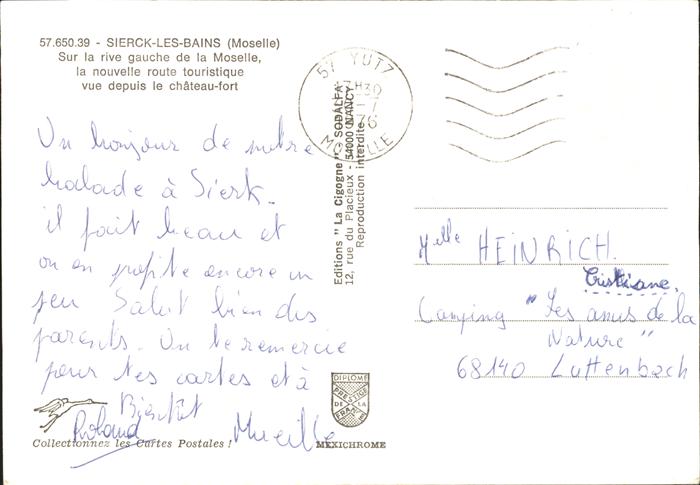 57.650.39 - SIERCK-LES-BAINS (Moselle)
Sur la rive gauche de la Moselle,
la nouvelle route touristique
vue depuis le château-fort
Un bonjour de notre
balade à Sierk.
il fait beau et
on en profite encore un
peu Salut bien des
parents. On te remercie
pour tes cartes et à
Bientôt
Roland Mireille
Collectionnez les Cartes Postales !
57 YUTZ
17H30
1976
MOSELLE
Editions "La Cigogne" - SODALFA
12, rue du Placieux - 54000 NANCY
Reproduction interdite
DIPLOME
PRESTIGE
DE LA
FRANCE
MEXICHROME
Melle HEINRICH.
Cristiane.
Camping "Les amis de la
Nature"
68140 Luttenbach